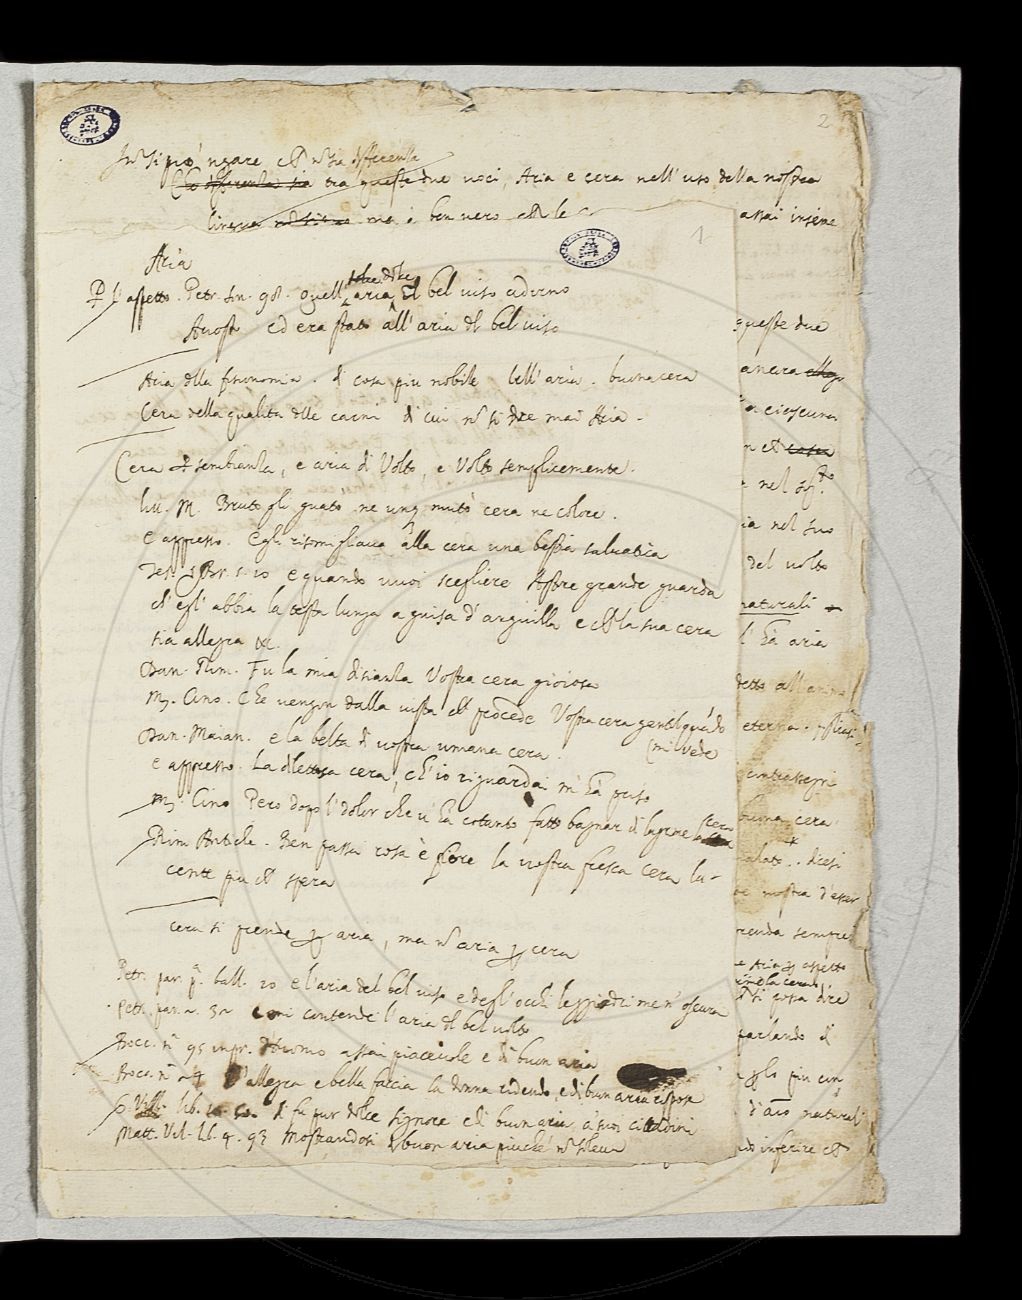 2
differenza
tra queste due voci, Aria e cera nell'uso della nostra
lingua ma è ben vero
assai insieme
1
Aria
l'aspetto. Petr. Son. 98. Quell'aria dolce del bel viso adorno
Ariost. ed era stato all'aria del bel viso
Aria della fisonomia. di cosa piu nobile bell'aria. buona cera
Cera della qualita delle carni di cui nō si dice mai Aria.
Cera sembianza, e aria di Volto, e Volto semplicemente.
liv. M. Bruto gli guato ne unq. mutò cera ne colore.
E appresso. Egli risomigliava alla cera una bestia salvatica
Tes. Br. 5. 10 e quando vuoi scegliere Astore grande guarda
ch'egl'abbia la testa lunga a guisa d'anguilla e che la sua cera
sia allegra &c.
Dan. Rim. Fu la mia disianza Vostra cera gioiosa
M. Cino. Che vengon dalla vista che procede Vostra cera gentil quādo
(mi vede
Dan. Maian. e la belta di vostra umana cera.
e appresso. La dilettosa cera, ch'io riguardai m'ha preso
M. Cino Pero dopo l'dolor che v'ha cotanto fatto bagnar di lagrime la cera
Rim. Antiche. Ben passa rosa e fiore la vostra fresca cera lu-
cente piu che spera
cera si prende p aria, ma nō aria p cera
Petr. par. p.ª ball. 10 e l'aria del bel viso e degl'occhi leggiadri me n' oscura
Petr. par. 2. 32 contende l'aria del bel volto
Bocc. n. 95 inpr. d'uomo assai piacevole e di buon aria
Bocc. n. 24 allegra e bella faccia la donna ridendo, e di buon aria rispose
G. Vill. lib. fu pur dolce signore e di buon aria a' suoi cittadini
Matt. Vil. lib. 4. 93 mostrandosi buon aria piuche nō soleva
queste due
ancora
ciascuna
nel
nel suo
del volto
naturali
l'ha aria
detto all'aria
eterna.
contrassegni
buona cera
dicesi
mostra d'esser
prenda sempre
Aria p aspetto
la cera
si possa dire
parlando di
p lo piu con
d'aria naturali
inferire che